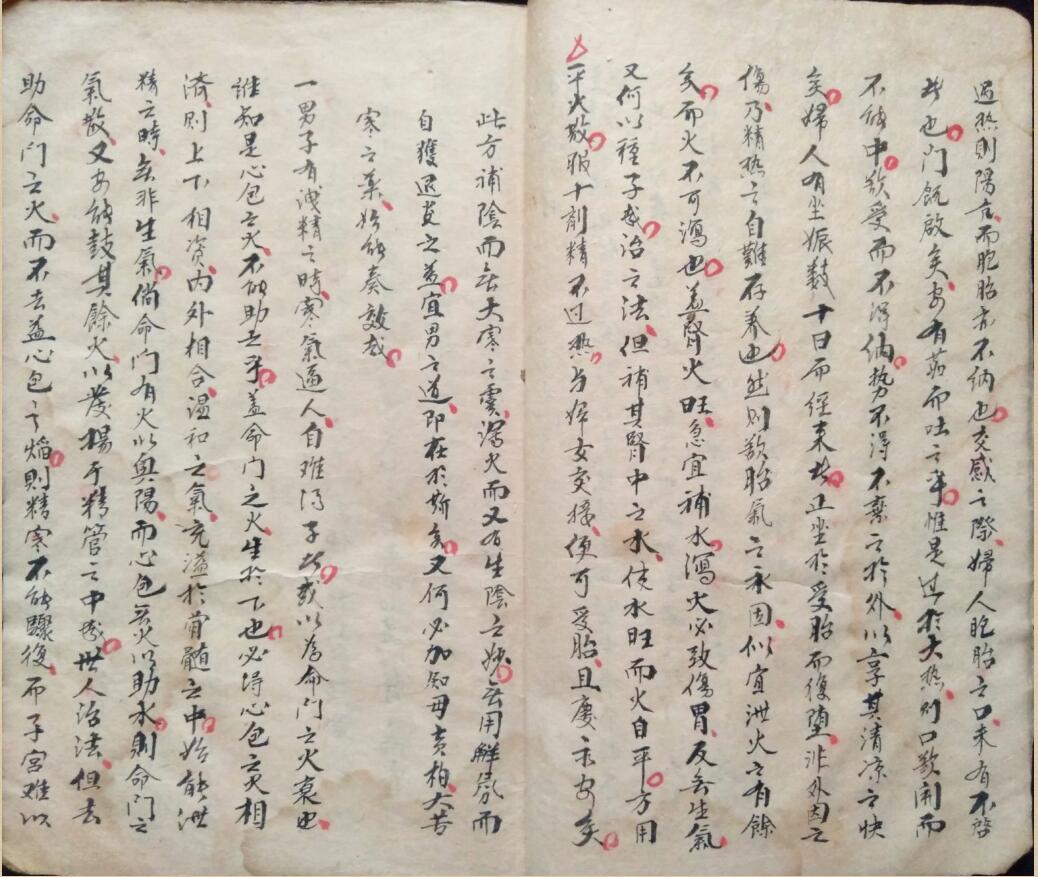 過热則陽亢而胞胎亦不納也交感之際婦人胞胎之口未有不啓
者也門既啟矣安有茹而吐之乎惟是过於大热則口欲闭而
不能中欲受而不得納势不得不棄之於外以享其清凉之快
矣婦人有坐娠数十日而经来者正坐於受胎而復堕非外因之
傷乃精热之自難存养也然则欲胎氣之永固似宜泄火之有餘
矣而火不可瀉也盖腎火旺急宜補水瀉火必致傷胃反無生氣
又何以種子哉治之法但補其腎中之水使水旺而火自平方用
平火散服十剤精不过热与婦女交接便可受胎且慶永安矣
此方補陰而無大寒之虞瀉火而又有生陰之妙無用觧氛而
自獲退炎之益宜男之道即在於斯矣又何必加知母黄柏大苦
寒之薬始能奏效哉
一男子有洩精之時寒氣逼人自难得子者或以為命門之火衰也
誰知是心包之火不能助之乎盖命門之火生於下也必得心包之火相
济則上下相资内外相合温和之氣充溢於骨髓之中始能泄
精之時無非生氣倘命門有火以興陽而心包無火以助水則命門之
氣散又安能鼓其餘火以發揚于精管之中哉世人治法但去
助命門之火而不去益心包之焰則精寒不能驟復而子宫难以